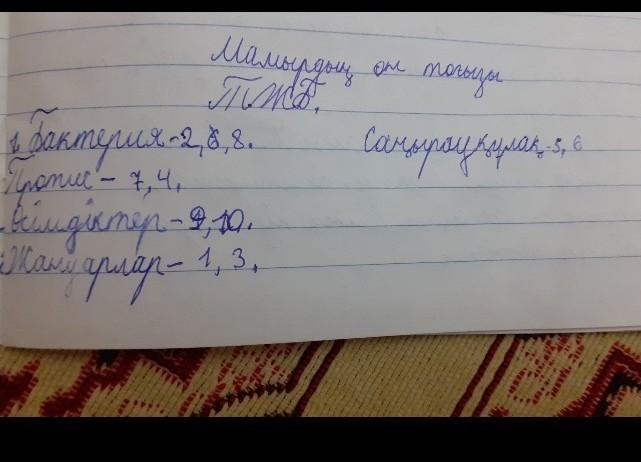 Мамырдың он тоғызы
ТЖБ.
1. Бактерия - 2, 8. Саңырауқұлақ - 5, 6
Протис - 7, 4.
Өсімдіктер - 9, 10.
Жануарлар - 1, 3.